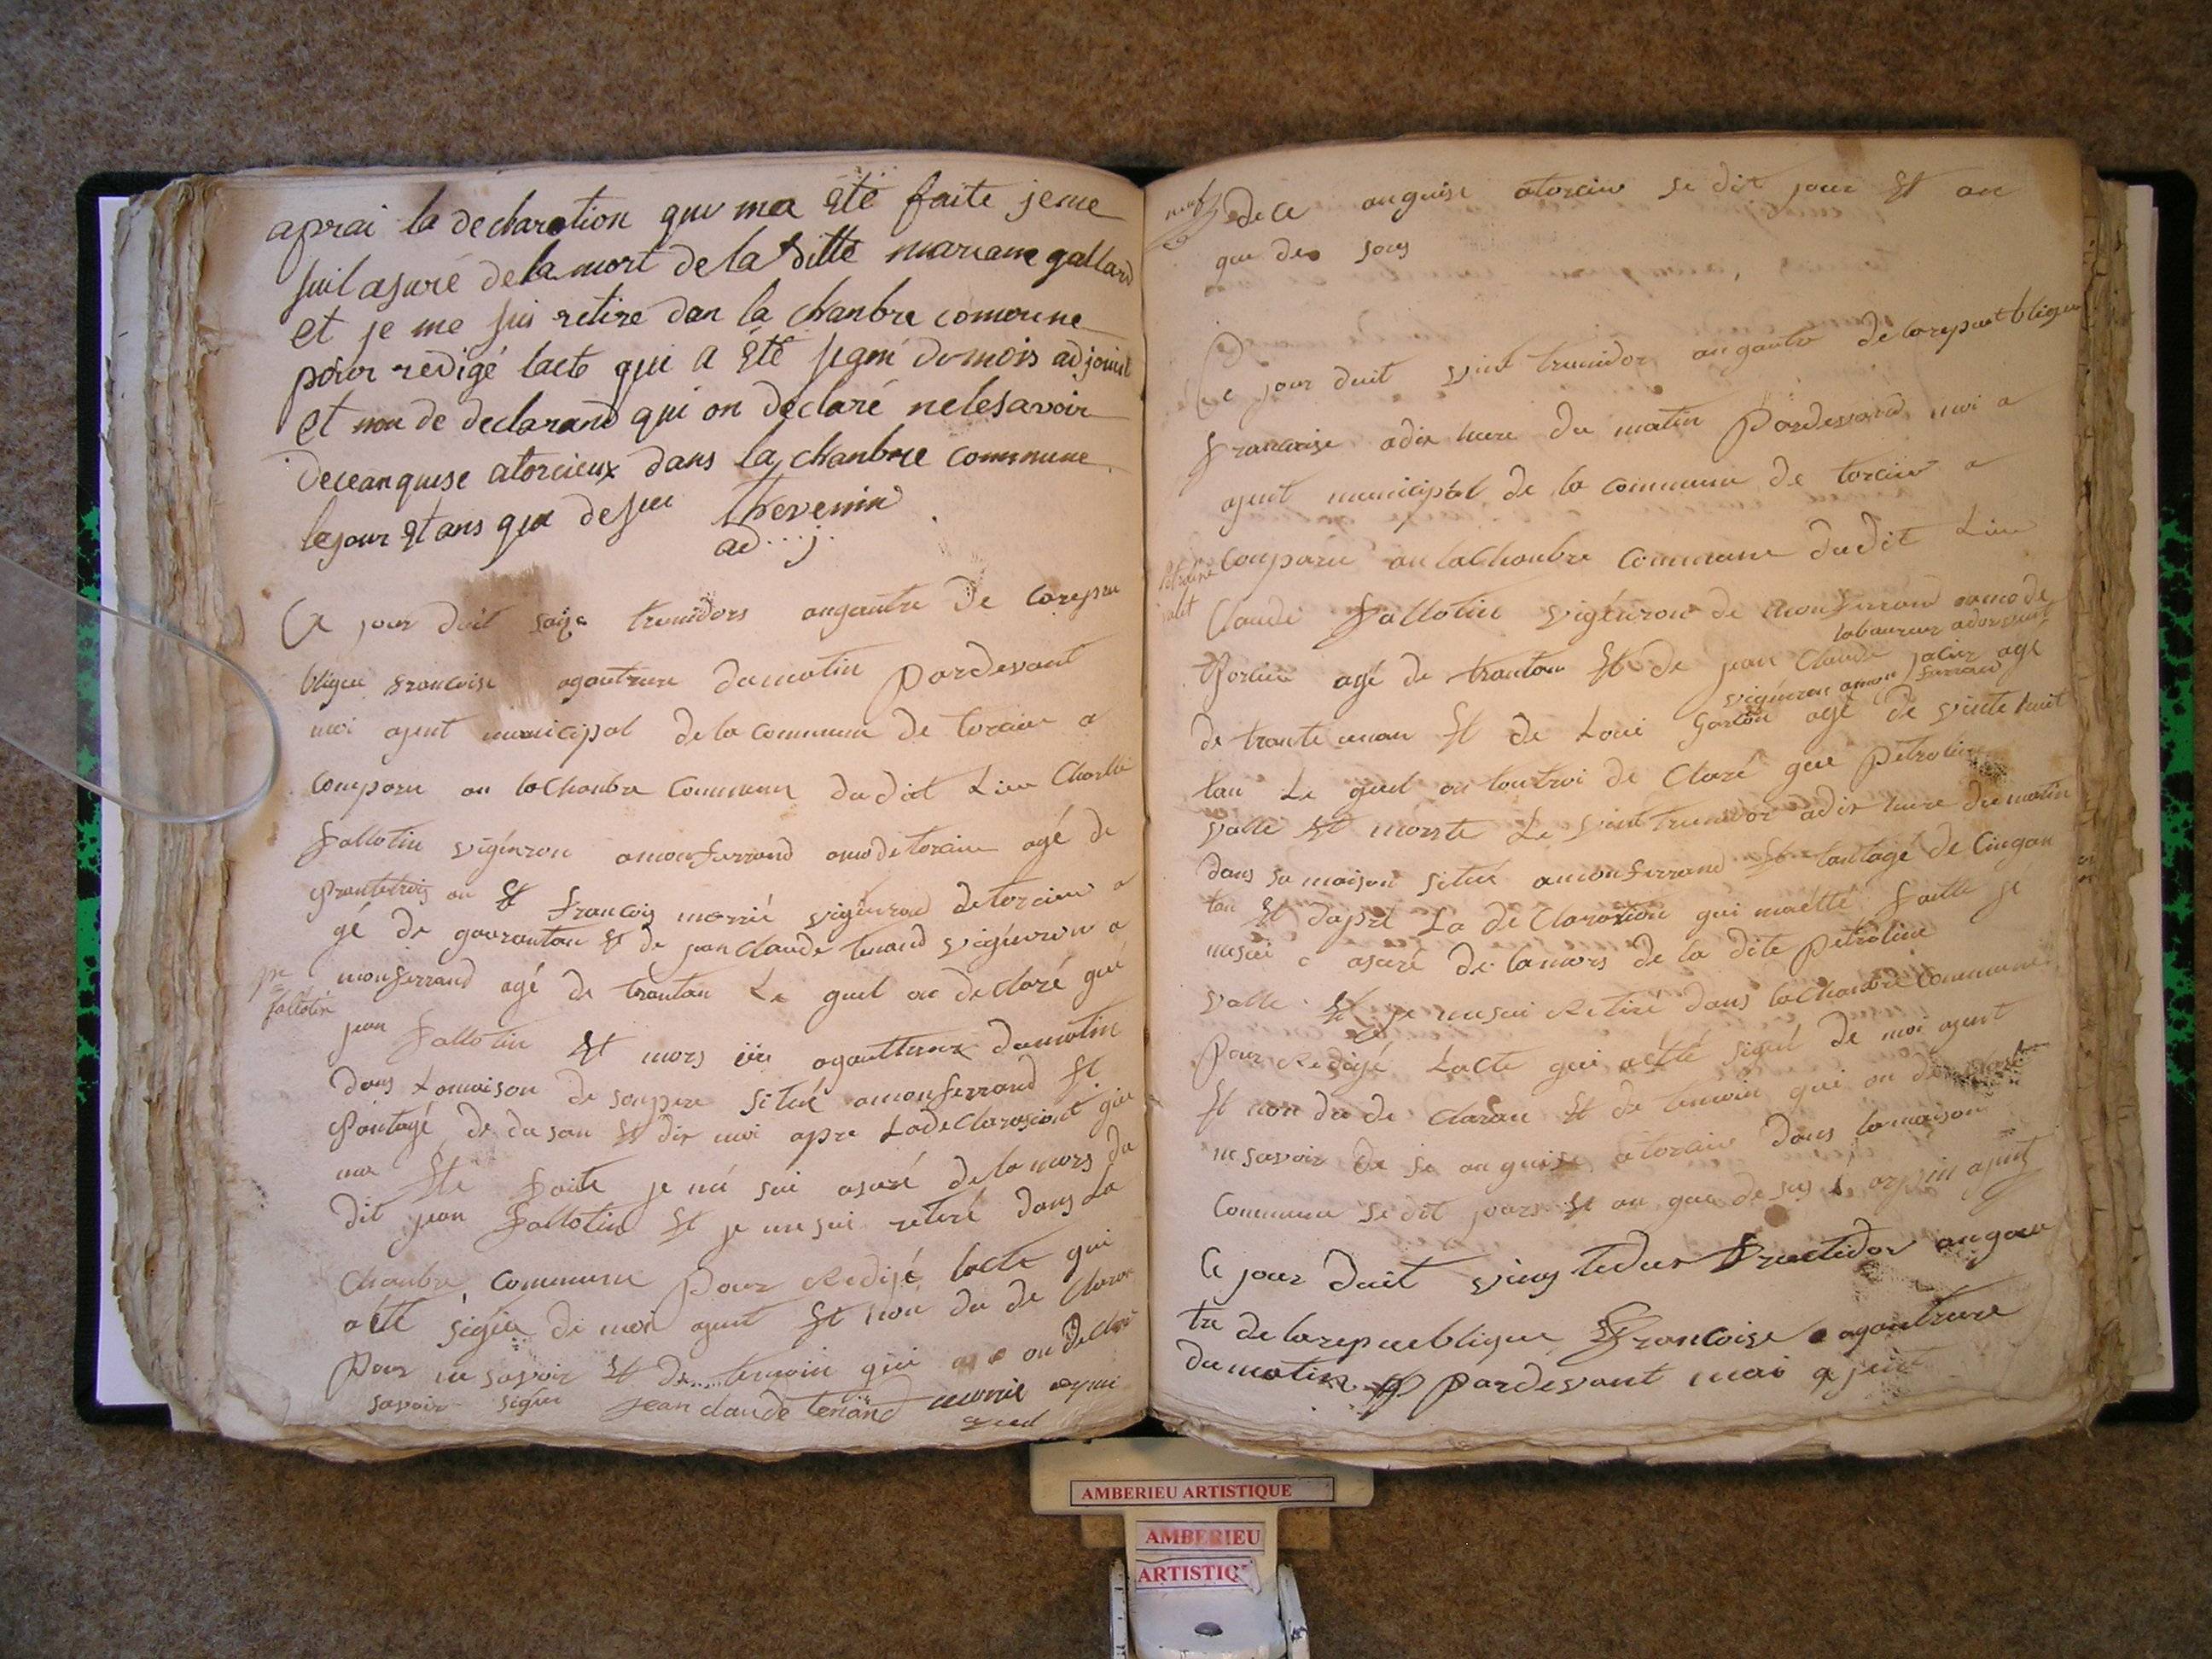 aprai la declaration que ma été faite jeme
suil asuré de la mort de la ditte mariane gallard
et je me suis retire dan la chanbre comoune
pour redigé lacte qui a été signé de mois adjoint
et non de declarand qui on déclaré ne le savoir
deceanquise atorcieux dans la chanbre commune
le jour et ans que desus thevenin
ad...j.
Ce jour duit saize termidors angautre de larepu
blique francoise agautreure dumatin pardevant
moi agent municipal de la commune de torcieu a
conparu an lachanbre commune dudit Lieu Charle
fallotin vigénron amonferrand amodetorcieu agé de
trantetrois an et francois morrié vigénron detorcieu a
gé de gaurantan et de jean claude tenand vigénron a
monferrand agé de trantan Le quel on declaré que
jn
fallotin
jean fallotin et mors agauttreure dumatin
dans Lamaison de sonpere situé amonferrand et
tantagé de dusan et dis moi apre Ladeclarasiont que
ma été faite je mé sui asuré de la mors du
dit jean fallotin et je me sui retiré dans La
Chanbre commune pour Redijé lacte qui
a été signé de moi agent et non du de Claran
pour ne savoir et de temoin qui on declaré
savoir signer jean claude tenand morrié
neuf
dece anguise atorcieu se dit jour et an
que de sus
Ce jour duit vint termidor angautre delarepuetblique
francaise adix heure du matin Pardessand moi a
gent municipal de la commune de torcieu a
Conparu an lachanbre Commune dudit Lieu
petroline
valet
Claude fallotin vigénron de monferrand amode
labaureur adorvant
torcieu agé de trantan et de jean Claude jacier agé
vigénron amonferrand
de trante unan et de Loui garlon agé de vinte huit
tan Le quel on toutroi de Claré que Petroline
valle et morste Le vint termidor adix heure du matin
dans sa maison situé amonferrand et tantagé de Cinqan
tan et dapré La de Clarasion qui maétté faitte je
mesui asuré de lamors de la dite petroline
valle et je mesui Retiré dans lachanbre Commune
pour Redijé Lacte qui aétté signé de moi agent
et non du de Claran et de temoin qui on declaré
ne savoir de se anguise atorcieu dans lamaison
Commune se dit jours et an que de sus arpin agent
Ce jour duit vingtedeus fructidor angau
tre de larepueblique francoise agautreure
dumatin pardevant moi agent
AMBERIEU ARTISTIQUE
AMBERIEU
ARTISTIQ